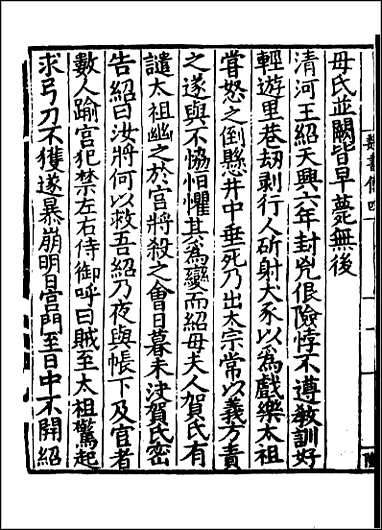 毋氏並闕皆早薨無後
清河王紹天興六年封兇佷險悖不遵教訓好
輕遊里巷刧剥行人斫射犬豕以為戲樂太祖
嘗怒之倒懸井中垂死乃出太宗常以義方責
之遂與不恊怕懼其為變而紹毋夫人賀氏有
譴太祖幽之於宮將殺之會日暮未決賀氏密
告紹曰汝將何以救吾紹乃夜與帳下及宦者
數人踰宮犯禁左右侍御呼曰賊至太祖驚起
求弓刀不獲遂暴崩明日宮門至日中不開紹